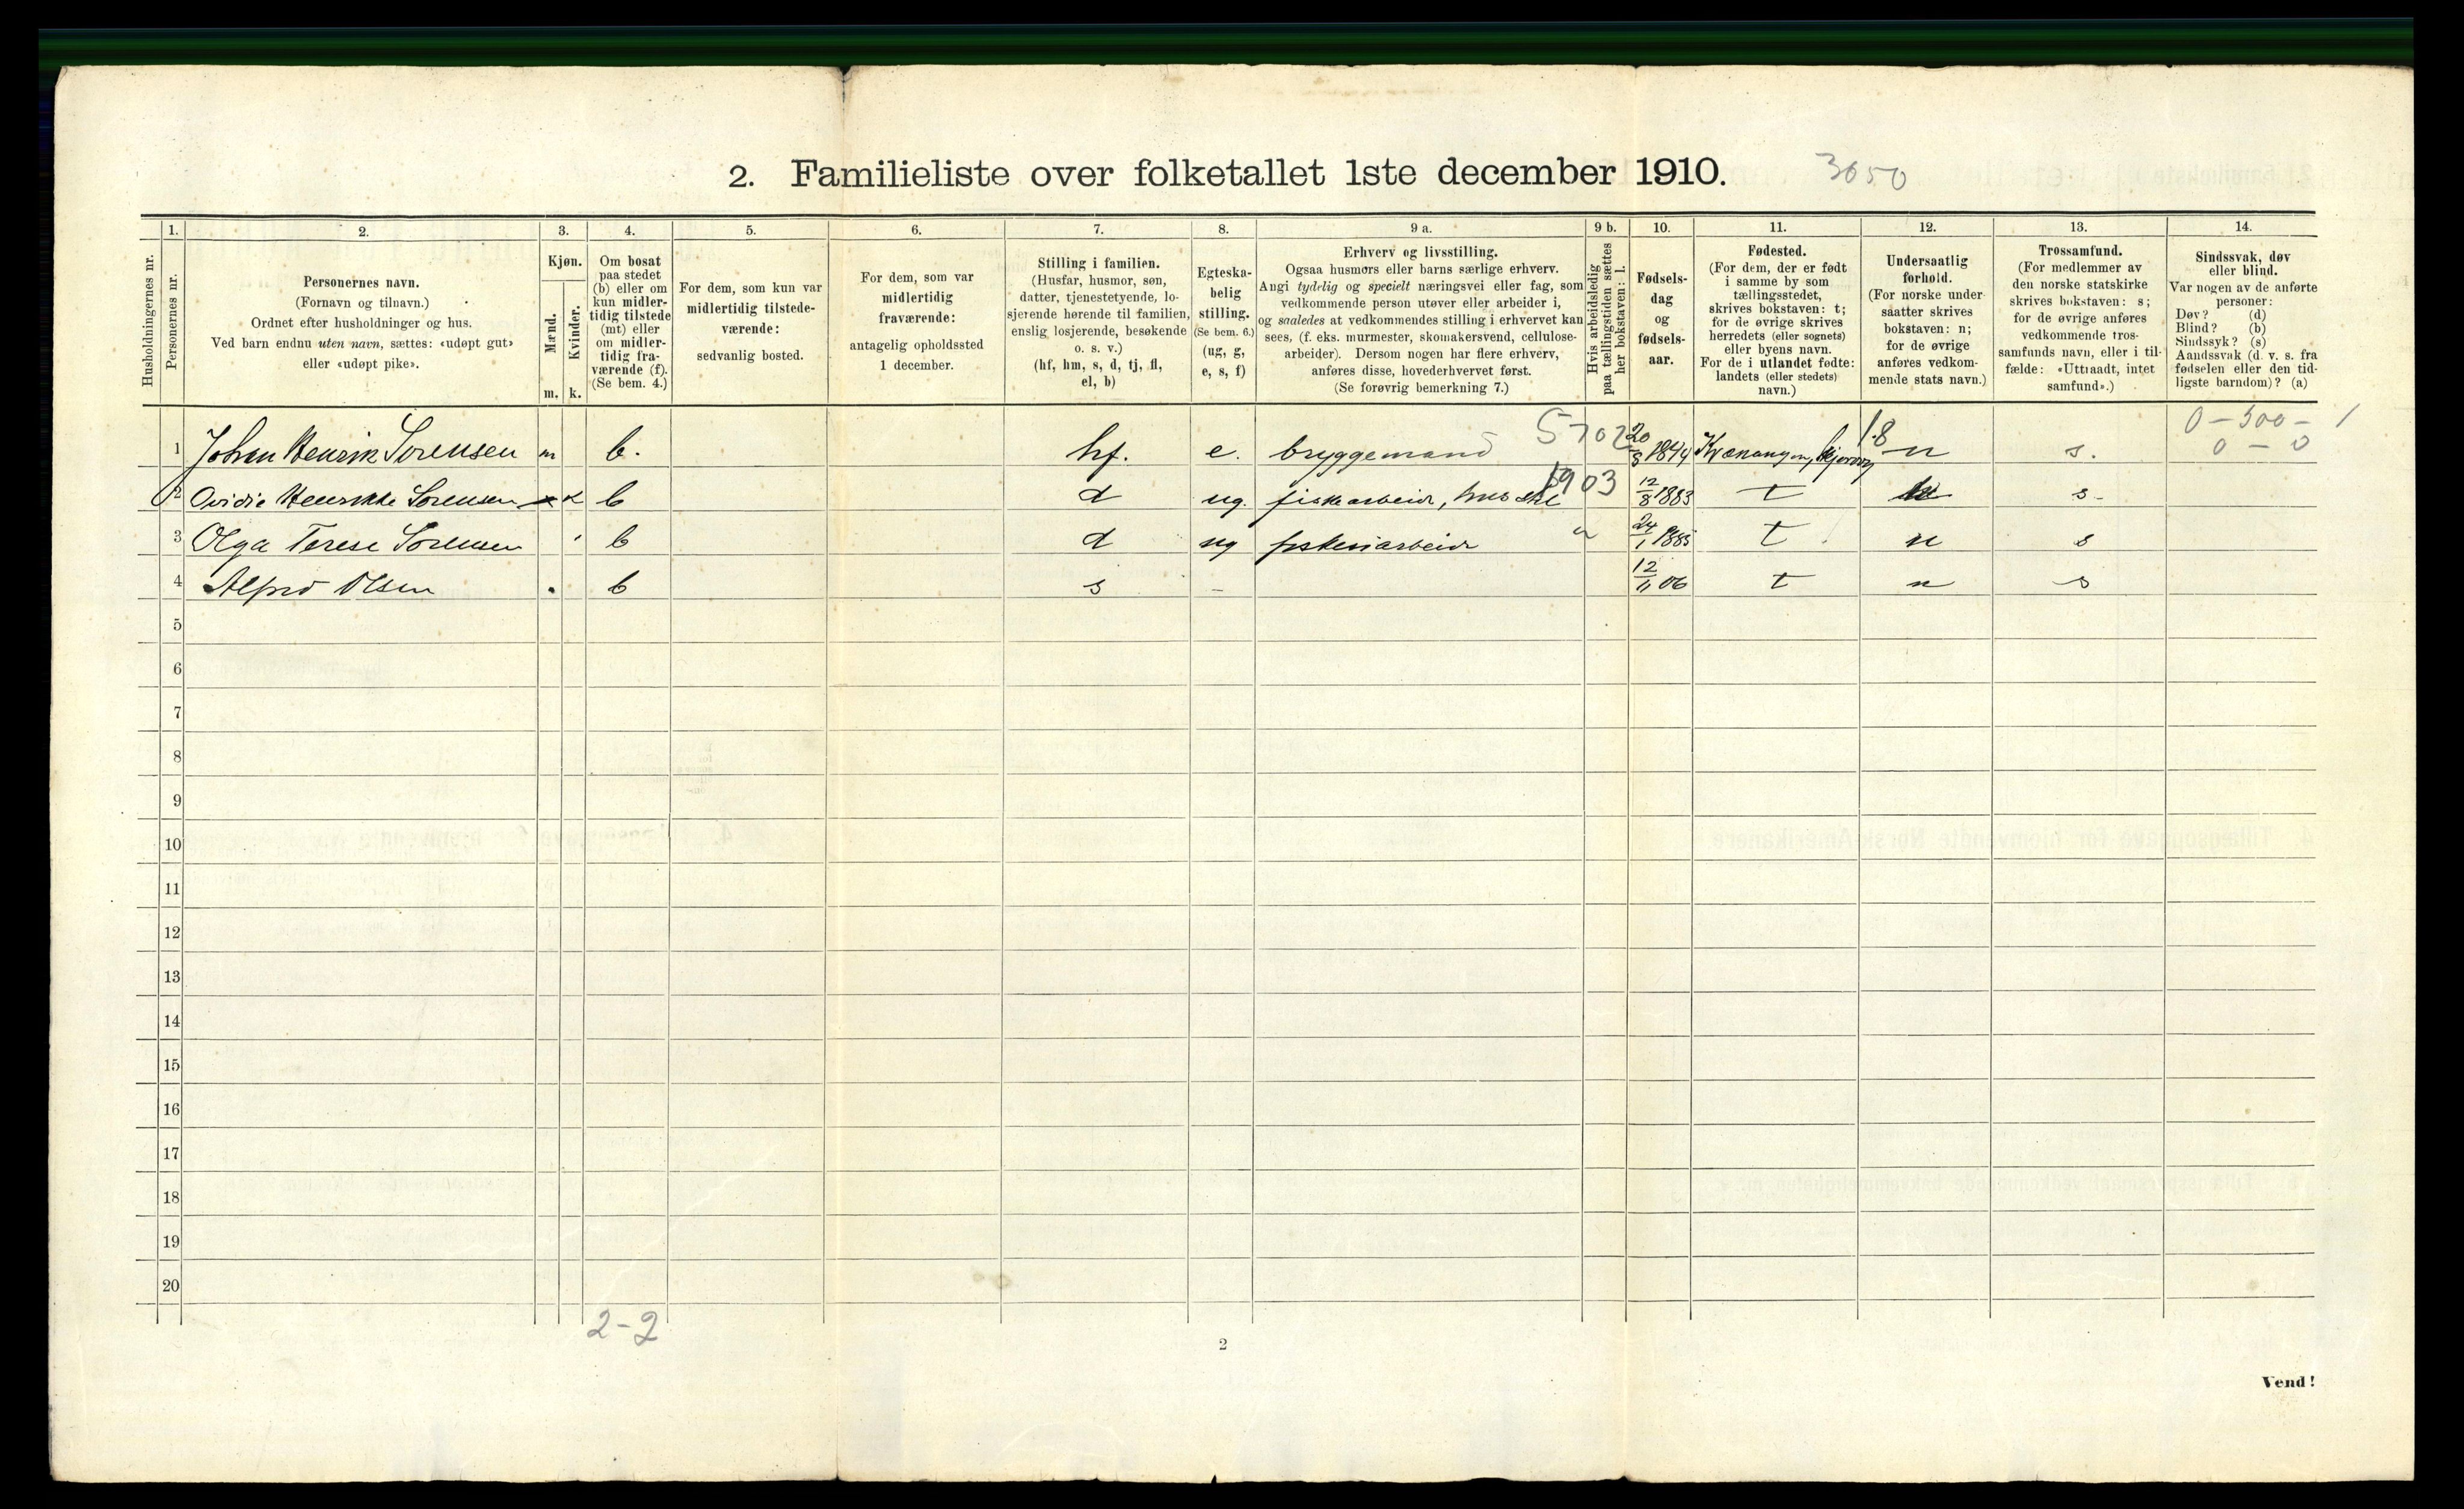 2. Familieliste over folketallet 1ste december 1910.
3650
Husholdningernes nr.
1.
Personernes nr.
2.
Personernes navn.
(Fornavn og tilnavn.)
Ordnet efter husholdninger og hus.
Ved barn endnu uten navn, sættes: «udøpt gut»
eller «udøpt pike».
3.
Kjøn.
Mænd.
Kvinder.
m. k.
4.
Om bosat
paa stedet
(b) eller om
kun midler-
tidig tilstede
(mt) eller
om midler-
tidig fra-
værende (f).
(Se bem. 4.)
5.
For dem, som kun var
midlertidig tilstede-
værende:
sedvanlig bosted.
6.
For dem, som var
midlertidig
fraværende:
antagelig opholdssted
1 december.
7.
Stilling i familien.
(Husfar, husmor, søn,
datter, tjenestetyende, lo-
sjerende hørende til familien,
enslig losjerende, besøkende
o. s. v.)
(hf, hm, s, d, tj, fl,
el, b)
8.
Egteska-
belig
stilling.
(Se bem. 6.)
(ug, g,
e, s, f)
9 a.
Erhverv og livsstilling.
Ogsaa husmors eller barns særlige erhverv.
Angi tydelig og specielt næringsvei eller fag, som
vedkommende person utøver eller arbeider i,
og saaledes at vedkommendes stilling i erhvervet kan
sees, (f. eks. murmester, skomakersvend, cellulose-
arbeider). Dersom nogen har flere erhverv,
anføres disse, hovederhvervet først.
(Se forøvrig bemerkning 7.)
9 b.
Hvis arbeidsledig
paa tællingstiden sættes
her bokstaven: l.
10.
Fødsels-
dag
og
fødsels-
aar.
11.
Fødested.
(For dem, der er født
i samme by som
tællingsstedet,
skrives bokstaven: t;
for de øvrige skrives
herredets (eller sognets)
eller byens navn.
For de i utlandet fødte:
landets (eller stedets)
navn.)
12.
Undersaatlig
forhold.
(For norske under-
saatter skrives
bokstaven: n;
for de øvrige
anføres vedkom-
mende stats navn.)
13.
Trossamfund.
(For medlemmer av
den norske statskirke
skrives bokstaven: s;
for de øvrige anføres
vedkommende tros-
samfunds navn, eller i til-
fælde: «Uttraadt, intet
samfund».)
14.
Sindssvak, døv
eller blind.
Var nogen av de anførte
personer:
Døv? (d)
Blind? (b)
Sindssyk? (s)
Aandssvak (d. v. s. fra
fødselen eller den tid-
ligste barndom)? (a)
1 Johan Henrik Sørensen m b. hf. e. bryggemand 5702 20/8 1844 Kvænangen, Skjervøy 18 n s. 0-300-1
0 - 0
2 Ovidie Henrikke Sørensen k b d ug. fiskearbeide, hus stel 1903 12/8 1883 t n s-
3 Olga Terese Sørensen b d ug fiskeriarbeide " 24/1 1885 t n s
4 Alfred Olsen b s - 12/11 06 t n s
5
6
7
8
9
10
11
12
13
14
15
16
17
18
19
20
2-2
2
Vend!